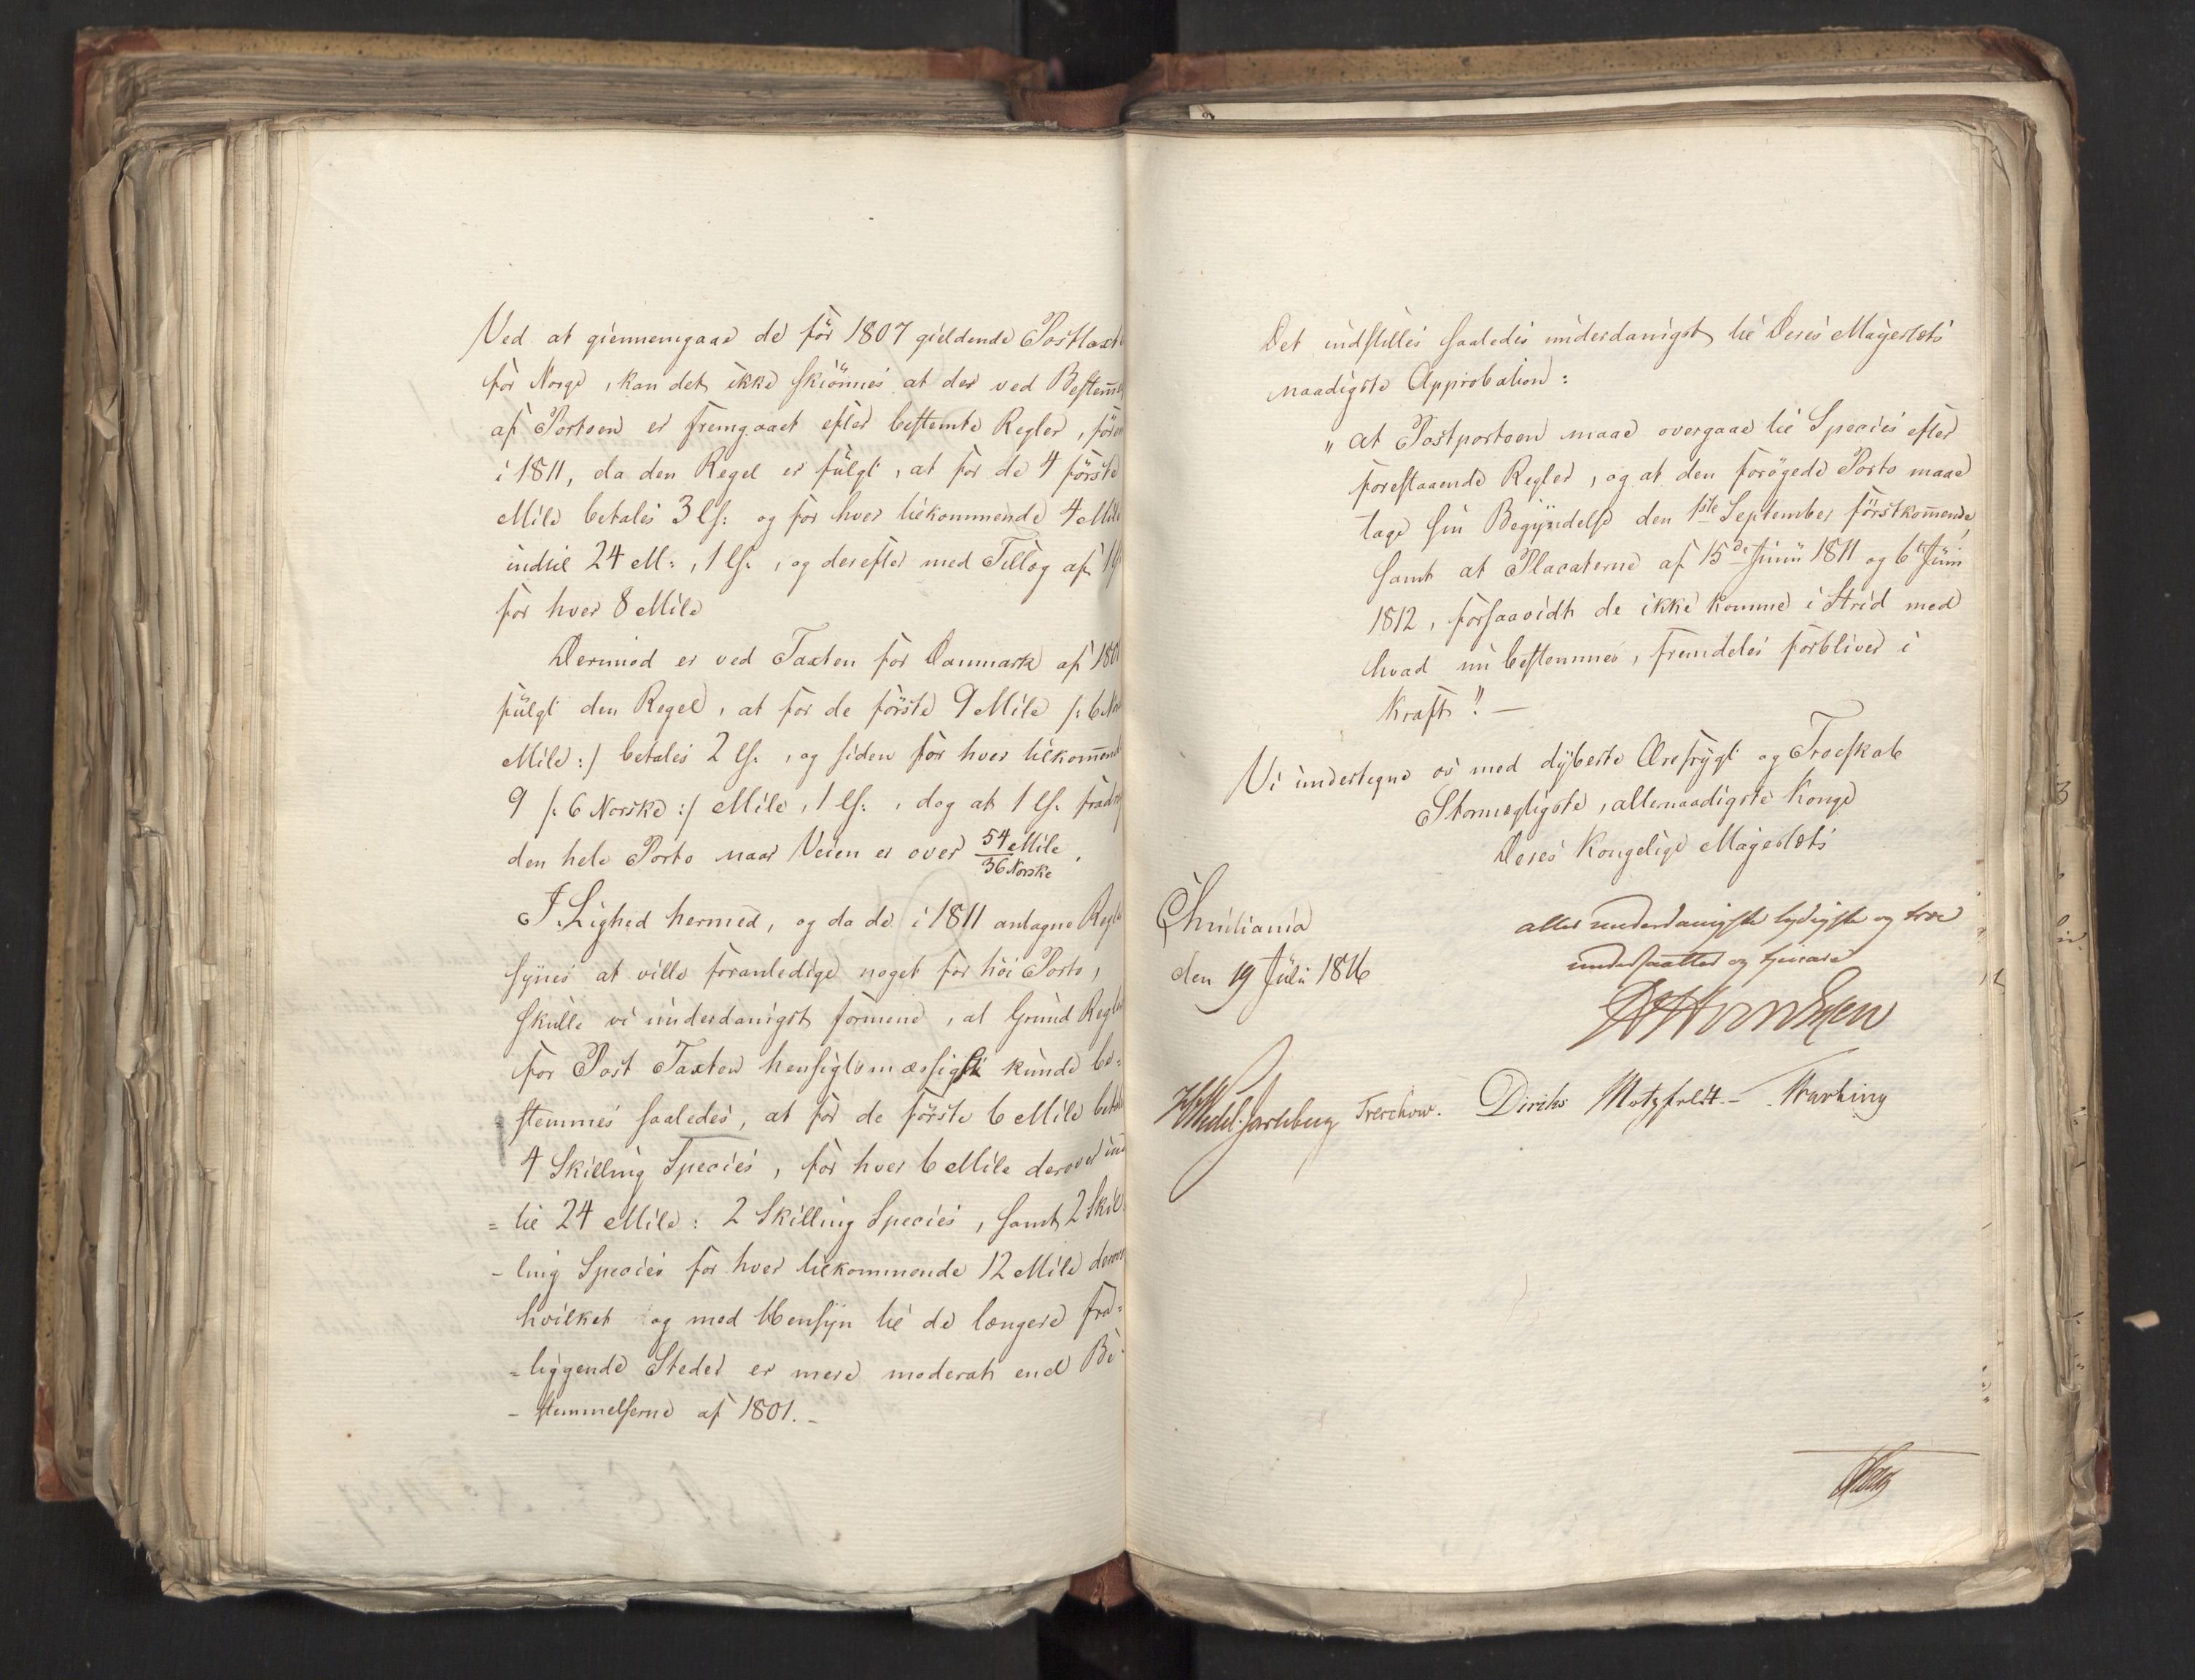 Ved at giennemgaae de før 1807 gieldende Posttaxt
for Norge, kan det ikke skiønnes at der ved Bestem̅
af Portoen er fremgaaet efter bestemte Regler, før
i 1811, da den Regel er fulgt, at for de 4 første
Mile betales 3 ls: og for hver tilkommende 4 Mile
indtil 24 M:, 1 ls., og derefter med Tillæg af 1 ls
for hver 8 Mile
Derimod er ved Taxten for Danmark af 180
fulgt den Regel, at for de første 9 Mile /: 6 No
Mile :/ betales 2 ls., og siden for hver tilkom̅end
9 /: 6 Norske :/ Mile, 1 ls., dog at 1 ls. fradr
den hele Porto naar Veien er over 54 Mile
36 Norske.
I Lighed hermed, og da de i 1811 antagne Regl
synes at ville foranledige noget for høi Porto,
skulle vi underdanigst formene, at Grund Regl
for Post Taxten hensigtsmæssigst kunde be=
stemmes saaledes, at for de første 6 Mile betal
4 Skilling Species, for hver 6 Mile derover ind
= til 24 Mile: 2 Skilling Species, samt 2 Skil
- ling Species for hver tilkommende 12 Mile derov
hvilket og med Hensyn til de længere fra=
= liggende Steder er mere moderat end Be-
- stemmelserne af 1801. -
Det indstilles saaledes underdanigst til Deres Majestæts
naadigste Approbation:
"at Postportoen maae overgaae til Species efter
forestaaende Regler, og at den forøgede Porto maae
tage sin Begyndelse den 1ste September førstkom̅ende,
samt at Placaterne af 15de Junii 1811 og 6te Junii
1812, forsaavidt de ikke komme i Strid med
hvad nu bestemmes, fremdeles forbliver i
Kraft". -
Vi undertegne os med dybeste Ærefrygt og Troeskab
Stormægtigste, allernaadigste Konge
Deres Kongelige Majestæts
Christiania
den 19 Juli 1816
allerunderdanigste lydigste og troe
undersaatter og tjenere
Wedel-Jarlsberg Treschow. Diriks Motzfeldt -